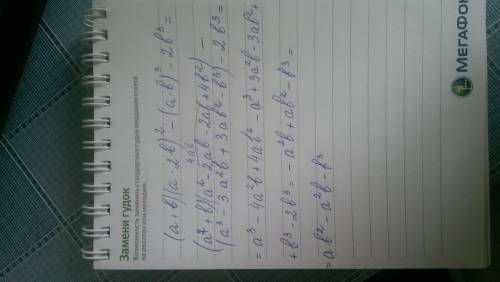 Замени гудок
Возможность заменить стандартные гудки ожидания ответа
на рингтон или мелодию.
(a+b)(a-2b)² - (a-b)³ - 2b³ =
4ab
(a+b)(a² - 2ab - 2ab + 4b²) -
(a³ - 3a²b + 3ab² - b³) - 2b³ =
= a³ - 4a²b + 4ab² - a³ + 3a²b - 3ab² +
+ b³ - 2b³ = - a²b + ab² - b³ =
= ab² - a²b - b³
МЕГАФОН